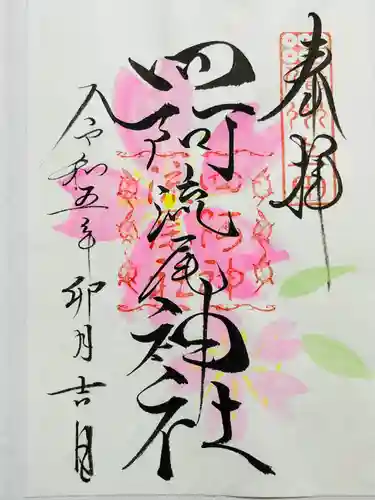 奉拝
四阿流尾神社
令和五年卯月吉日